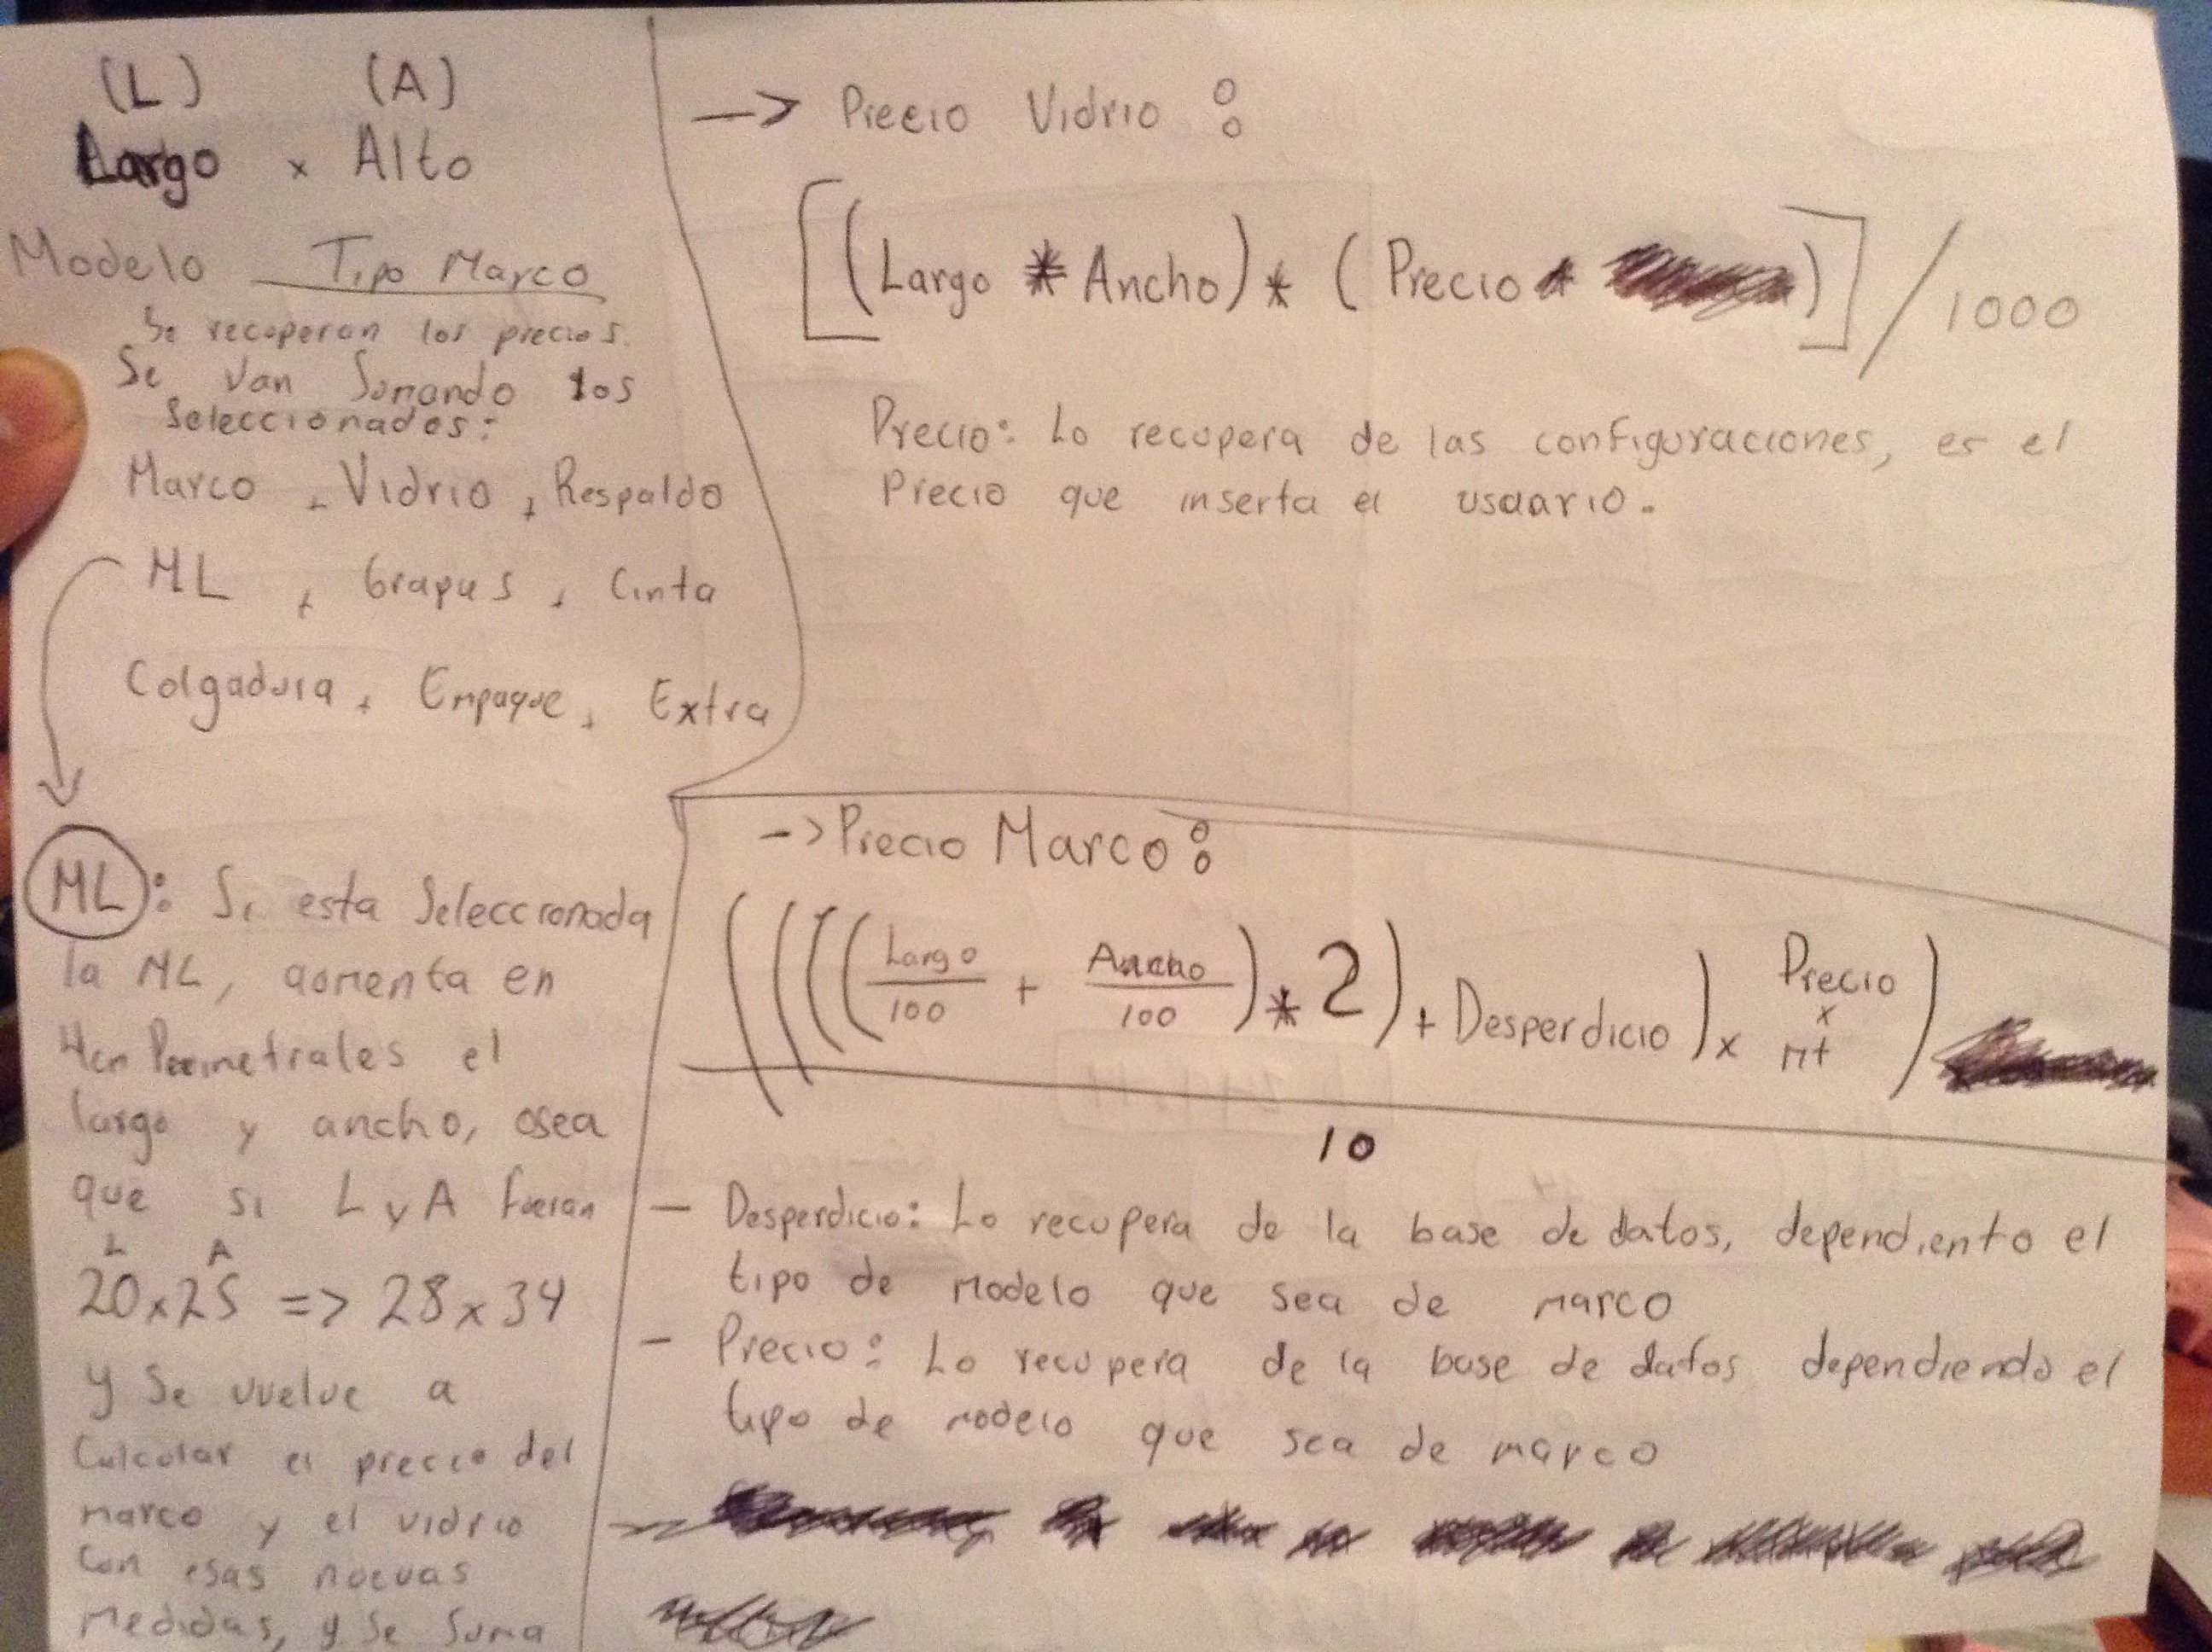 (L) (A)
Largo x Alto
Modelo Tipo Marco
Se recuperan los precios.
Se van sumando los
Seleccionados:
Marco + Vidrio + Respaldo
ML + Grapas + Cinta
Colgadura + Empaque + Extra
ML: Si esta Seleccionada
la ML, aumenta en
4cm Perimetrales el
largo y ancho, osea
que si L y A fueran
L A
20x25 => 28x34
y Se vuelve a
Calcular el precio del
marco y el vidrio
con esas nuevas
medidas, y se suma
-> Precio Vidrio:
[(Largo * Ancho) * (Precio )] / 1000
Precio: Lo recupera de las configuraciones, es el
Precio que inserta el usuario.
-> Precio Marco:
((((Largo/100 + Ancho/100) * 2) + Desperdicio) x Precio x Mt)
10
- Desperdicio: Lo recupera de la base de datos, dependiento el
tipo de modelo que sea de marco
- Precio: Lo recupera de la base de datos dependiendo el
tipo de modelo que sea de marco